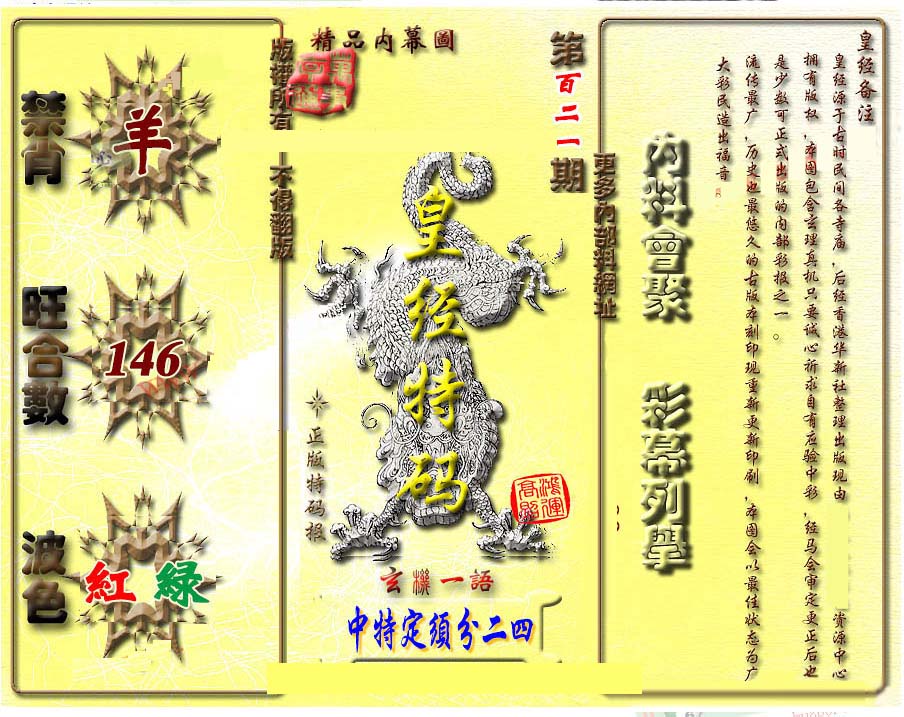 精品内幕圖
版權所有
不得翻版
第百二一期
更多內部料網址
禁肖
羊
旺合數
146
波色
紅 綠
皇经特码
正版特码报
鴻運高照
玄機一語
中特定須分二四
內料會聚
彩幕列舉
皇经备注
皇经源于古时民间各寺庙，后经香港华新社整理出版现由
资源中心
拥有版权，本图包含玄理真机只要诚心祈求自有应验中彩，经马会审定更正后也
是少数可正式出版的内部彩报之一。
流传最广，历史也最悠久的古版本刻印现重新更新印刷，本图会以最佳状态为广
大彩民造出福音